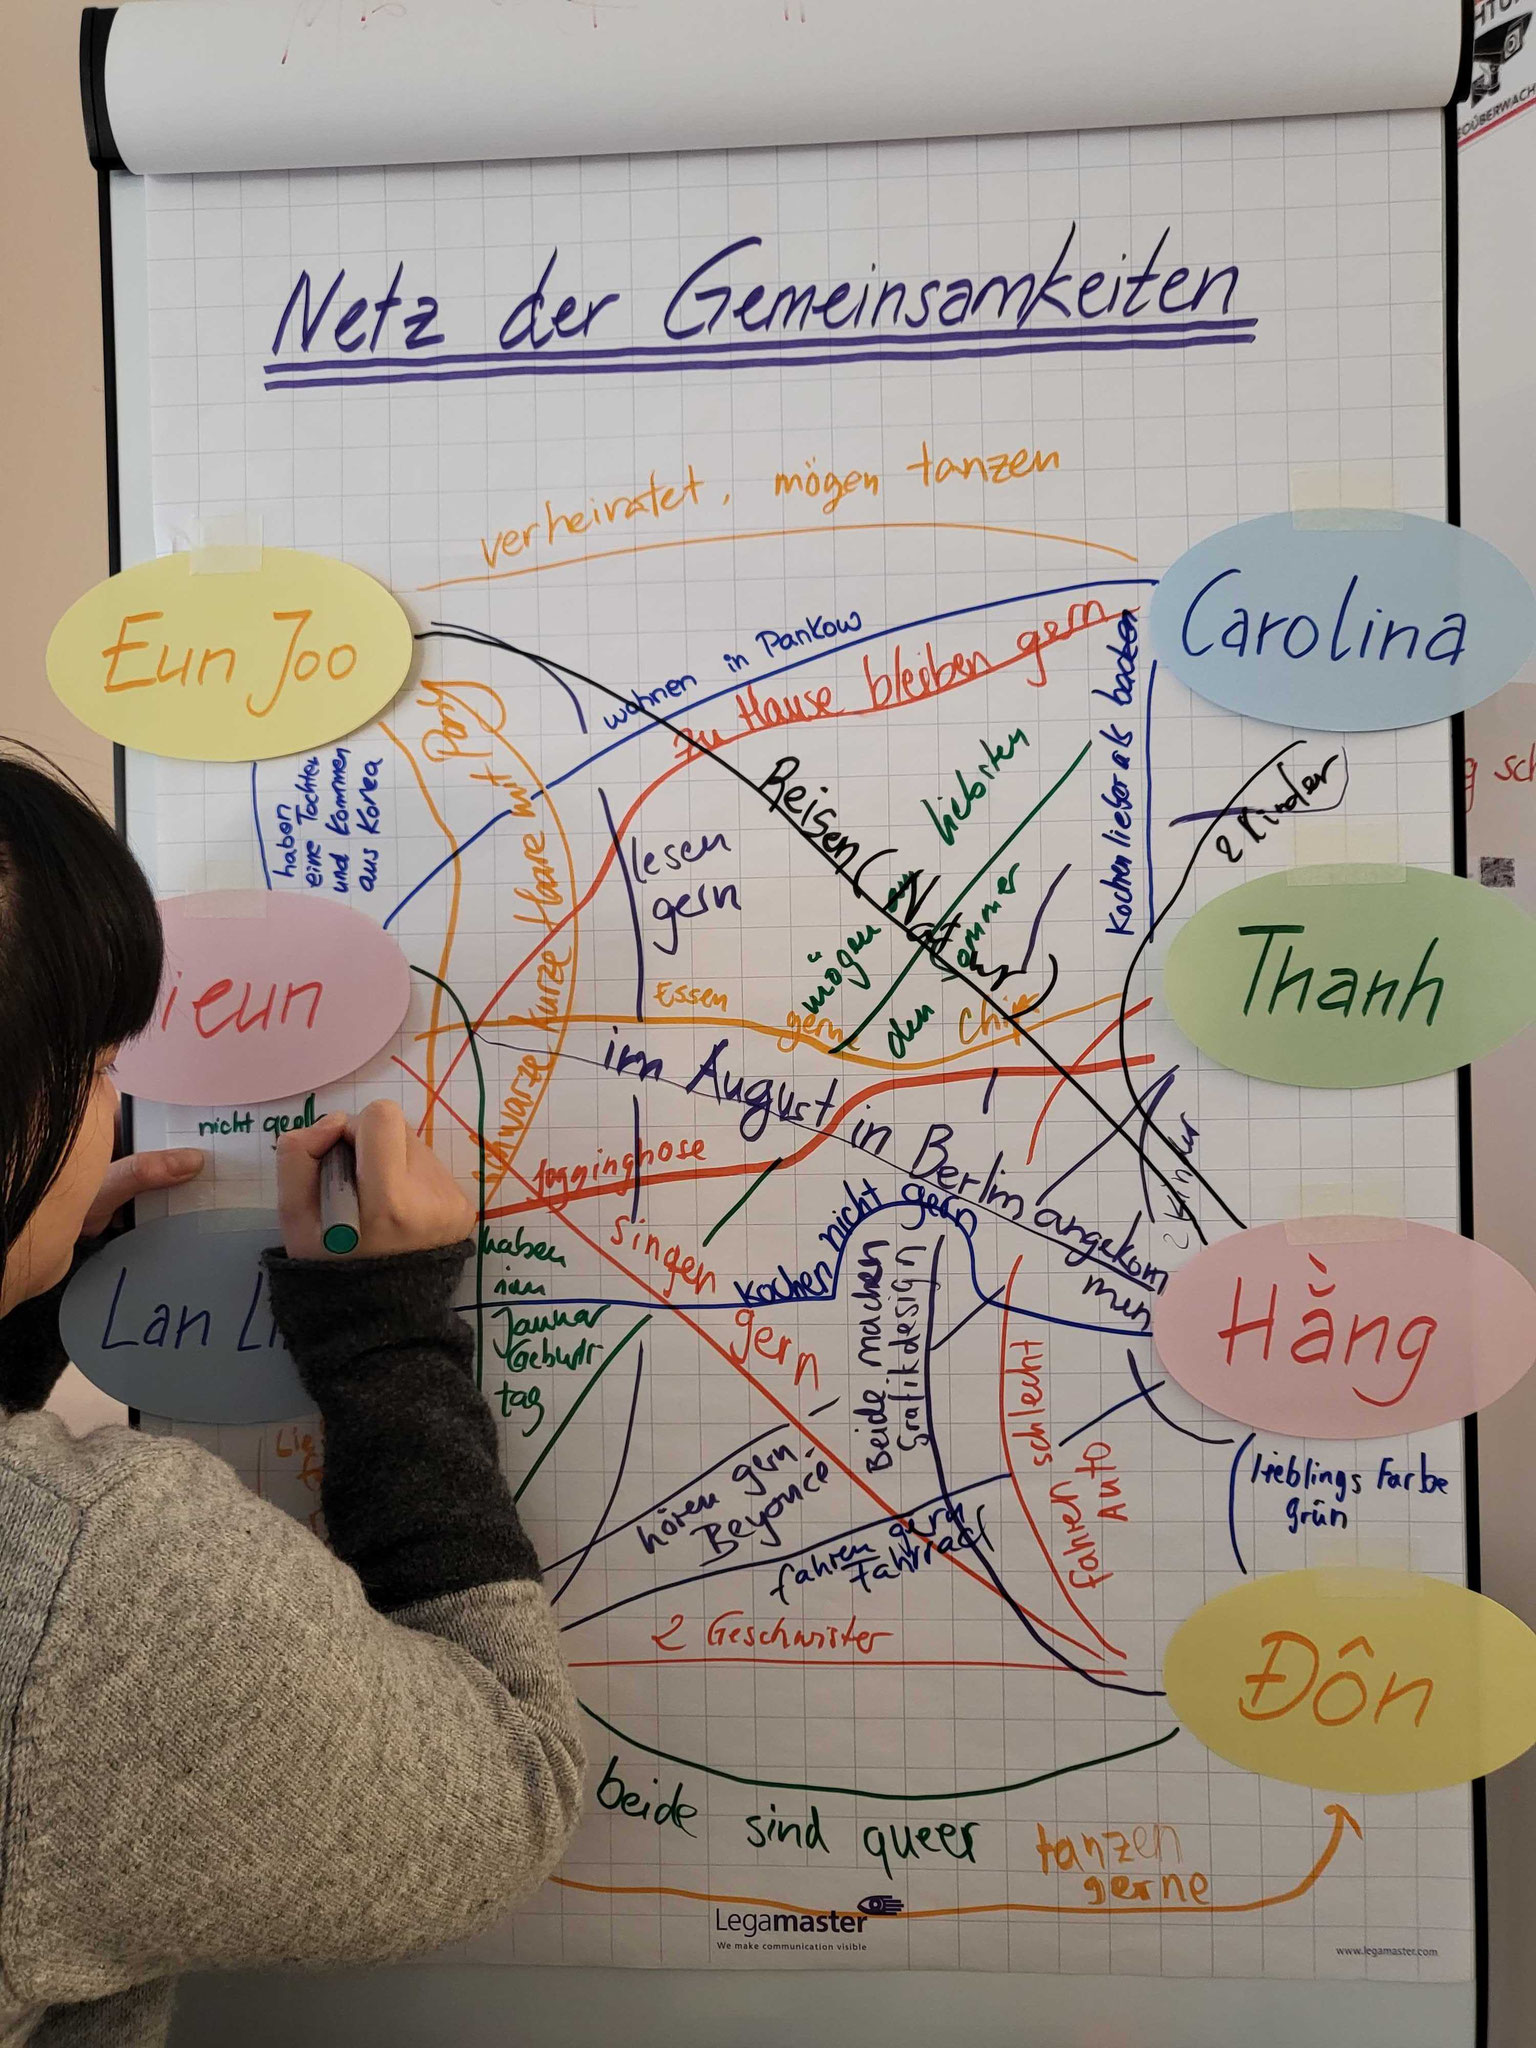 Netz der Gemeinsamkeiten
verheiratet, mögen tanzen
Eun Joo
Carolina
wohnen in Pankow
zu Hause bleiben gern
Kochen lieber als baden
haben
eine Tochter
und kommen
aus Korea
schwarze kurze Haare mit
Reisen (Natur)
lesen
gern
mögen am liebsten
den Sommer
2 Kinder
ieun
Thanh
Essen gerne Chips
im August in Berlin angekom
men
nicht
Jogginghose
singen
gern
2 Kinder
haben
im
Januar
Geburts
tag
kochen nicht gern
Beide machen
Grafikdesign
Lan Li
Hằng
schlecht
fahren
Auto
hören gern
Beyoncé
fahren gern
Fahrrad
Lieblings Farbe
grün
2 Geschwister
Đôn
beide sind queer
tanzen
gerne
Legamaster
We make communication visible
www.legamaster.com